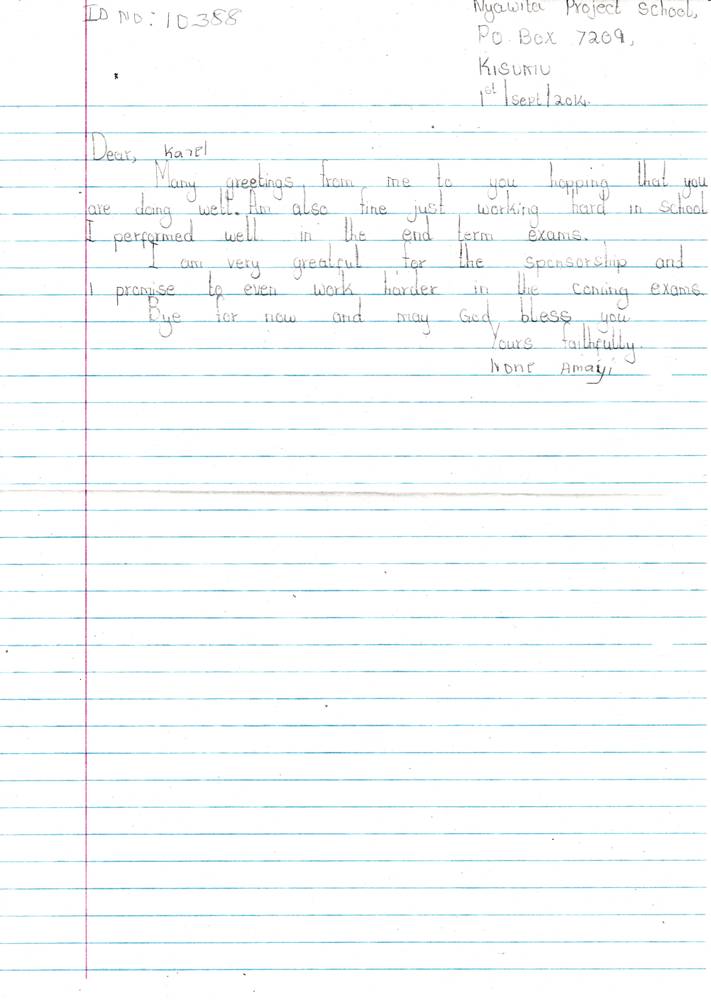 ID NO: 10388
Nyawita Project School,
P.O. Box 7209,
KISUMU
1st/Sept/2014.
Dear, Karel
Many greetings from me to you hopping that you
are doing well. Am also fine just working hard in school
I performed well in the end term exams.
I am very greatful for the sponsorship and
I promise to even work harder in the coming exams.
Bye for now and may God bless you
Yours faithfully.
Amayi